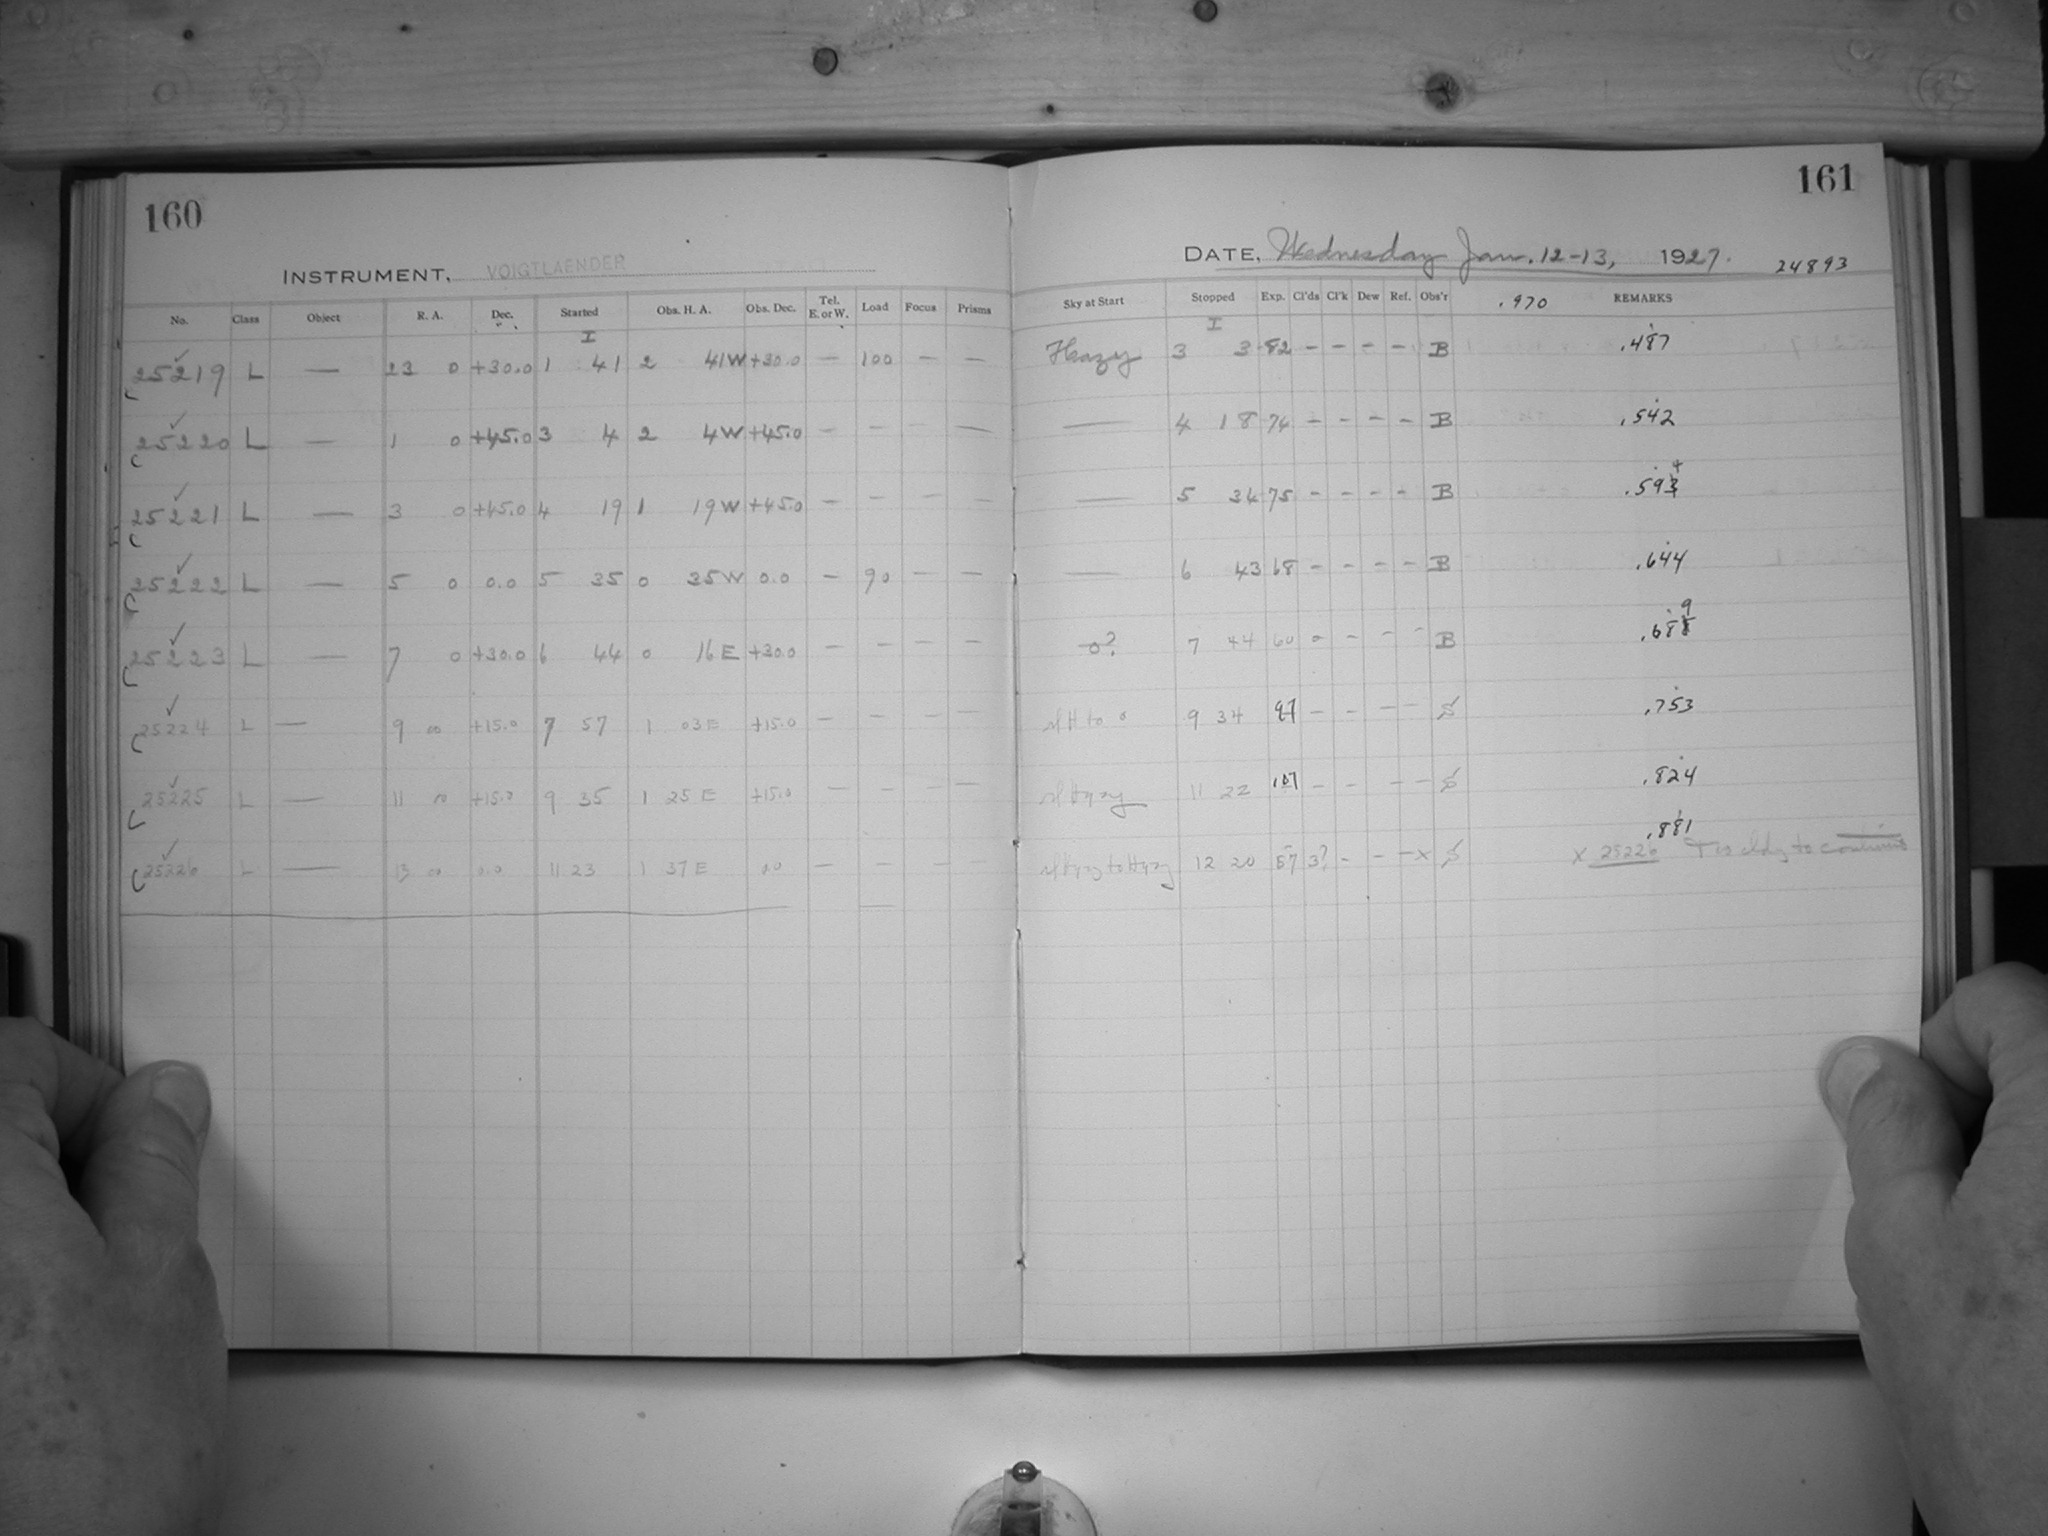 160
INSTRUMENT, VOIGTLAENDER
No. Class Object R. A. Dec. Started Obs. H. A. Obs. Dec. Tel. E. or W. Load Focus Prisms
I
25219 L — 23 0 +30.0 1 41 2 41W +30.0 — 100 — —
25220 L — 1 0 +45.0 3 4 2 4W +45.0 — — — —
25221 L — 3 0 +45.0 4 19 1 19W +45.0 — — — —
25222 L — 5 0 0.0 5 35 0 35W 0.0 — 90 — —
25223 L — 7 0 +30.0 6 44 0 16E +30.0 — — — —
25224 L — 9 00 +15.0 7 57 1 03E +15.0 — — — —
25225 L — 11 00 +15.0 9 35 1 25E +15.0 — — — —
25226 L — 13 00 0.0 11 23 1 37E 0.0 — — — —
161
DATE, Wednesday Jan. 12-13, 1927. 24893
Sky at Start Stopped Exp. Cl'ds Cl'k Dew Ref. Obs'r .970 REMARKS
I
Hazy 3 3 82 — — — — B .487
— 4 18 74 — — — — B .542
— 5 34 75 — — — — B .593 4
— 6 43 68 — — — — B .644
o? 7 44 60 o — — — B .688 9
to o 9 34 97 — — — — S .753
11 22 107 — — — — S .824
12 20 57 3? — — — x S .881
x 25226 Too cldy to continue